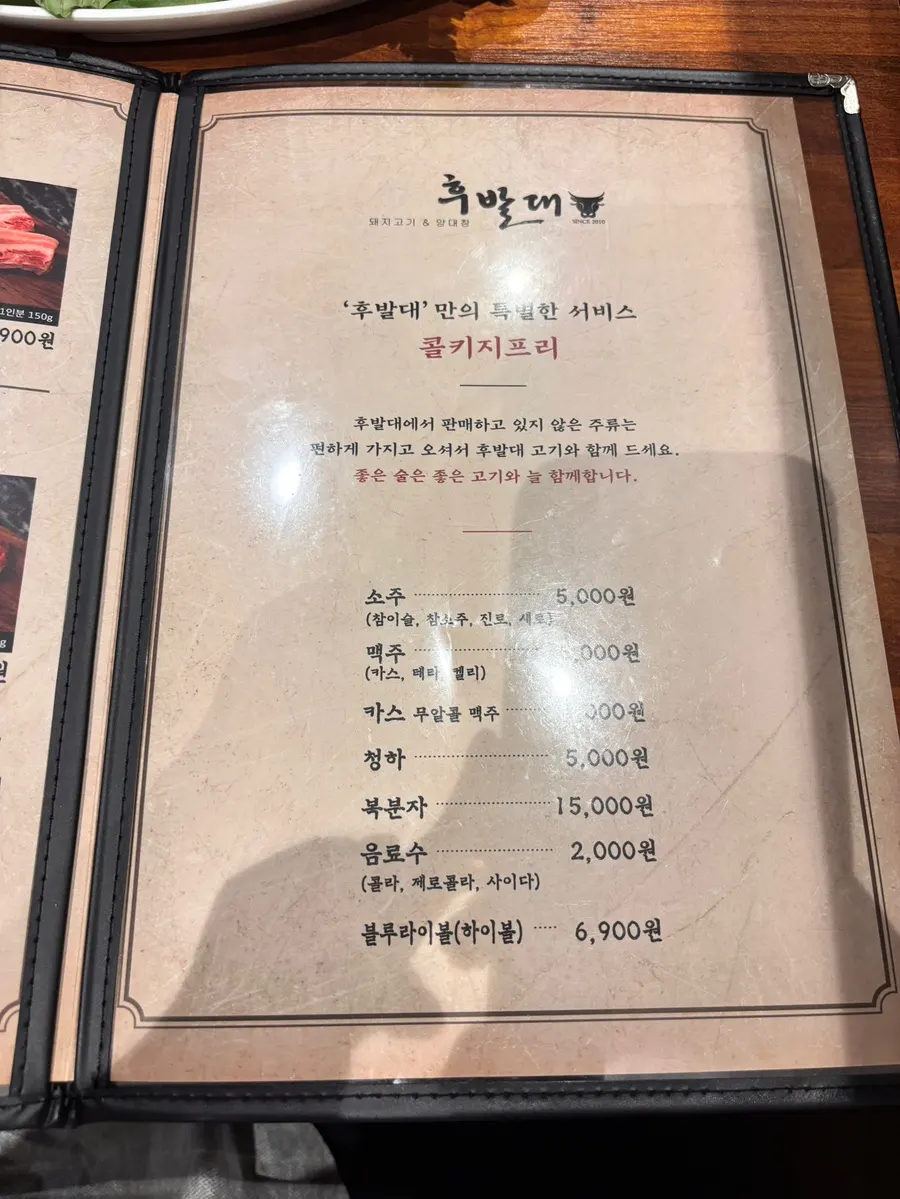 1인분 150g
900원
g
원
후발대
돼지고기 & 양대창
SINCE 2018
‘후발대’만의 특별한 서비스
콜키지프리
후발대에서 판매하고 있지 않은 주류는
편하게 가지고 오셔서 후발대 고기와 함께 드세요.
좋은 술은 좋은 고기와 늘 함께합니다.
소주 5,000원
(참이슬, 참소주, 진로, 새로)
맥주 ,000원
(카스, 테라, 켈리)
카스 무알콜 맥주 000원
청하 5,000원
복분자 15,000원
음료수 2,000원
(콜라, 제로콜라, 사이다)
블루라이볼(하이볼) 6,900원